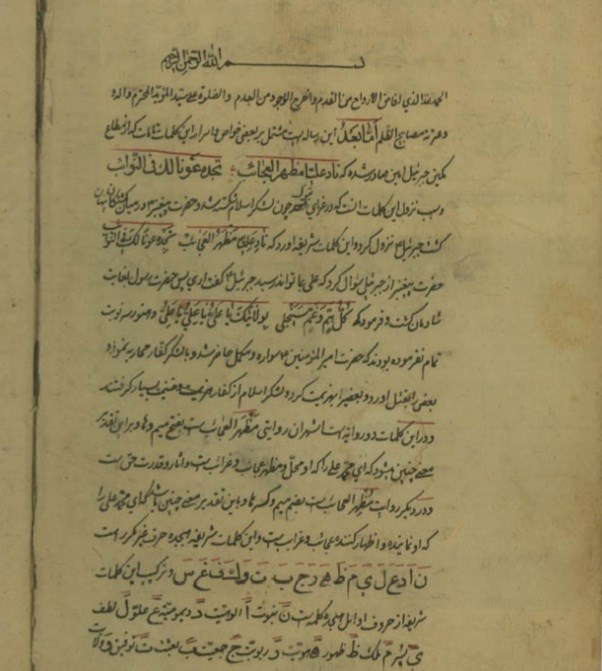 بسم الله الرحمن الرحیم
الحمد لله الذی افاض الارواح من القدم و اخرج الوجود من العدم و الصلوة علی سید المحترم و آله
و عترته مصابیح الظلم اما بعد این رساله ایست مشتمل بر بعضی خواص و اسرار این کلمات تامات که از مطلع
جبرئیل امین صادر شده که ناد علیا مظهر العجائب تجده عونا لک فی النوائب
و سبب نزول این کلمات آنست که در غزای چون لشکر اسلام شکسته شد و حضرت پیغمبر در میان
گشت جبرئیل نزول کرد و این کلمات شریفه آورد که ناد علیا مظهر العجائب تجده عونا لک فی النوائب
حضرت پیغمبر از جبرئیل سؤال کرد که علی بما تواند رسید جبرئیل گفت آری پس حضرت رسول بغایت
شادمان گشت و فرمود که کل هم و غم سینجلی بولایتک یا علی یا علی یا علی و هنوز سه نوبت
تمام نفرموده بودند که حضرت امیر المؤمنین سواره و مکمل حاضر شد و با لشکر کفار محاربه نمود و
بعضی را بقتل آورد و بعضی را بهزیمت کرد و لشکر اسلام از کفار هزیمت و غنیمت بسیار گرفتند
و در این کلمات دو روایت است اشهر آن روایتی مظهر العجائب است بفتح میم و ها و بر این تقدیر
معنی چنین میشود که ای محمد علی را که او محل و مظهر عجائب و غرائب است و آثار و قدرت حق است
و در دیگر روایت مظهر العجائب است بضم میم و کسر ها و باین تقدیر معنی چنین باشد که ای محمد علی را
که او نماینده و اظهار کننده عجائب و غرائب است و این کلمات شریفه هیجده حرف غیر مکرر است
ن ا د ع ل ی م ظ ه ر ج ب ت و ک ف غ س و ترکیب این کلمات
شریفه از حروف اوایل هیجده کلمه است ن نبوت ا الوهیت د دیمومیت ع علو ل لطف
ی م ملک ظ ظهور ه هویت ر ربوبیت ج جمعیت ب بعثت ت توفیق و ولایت